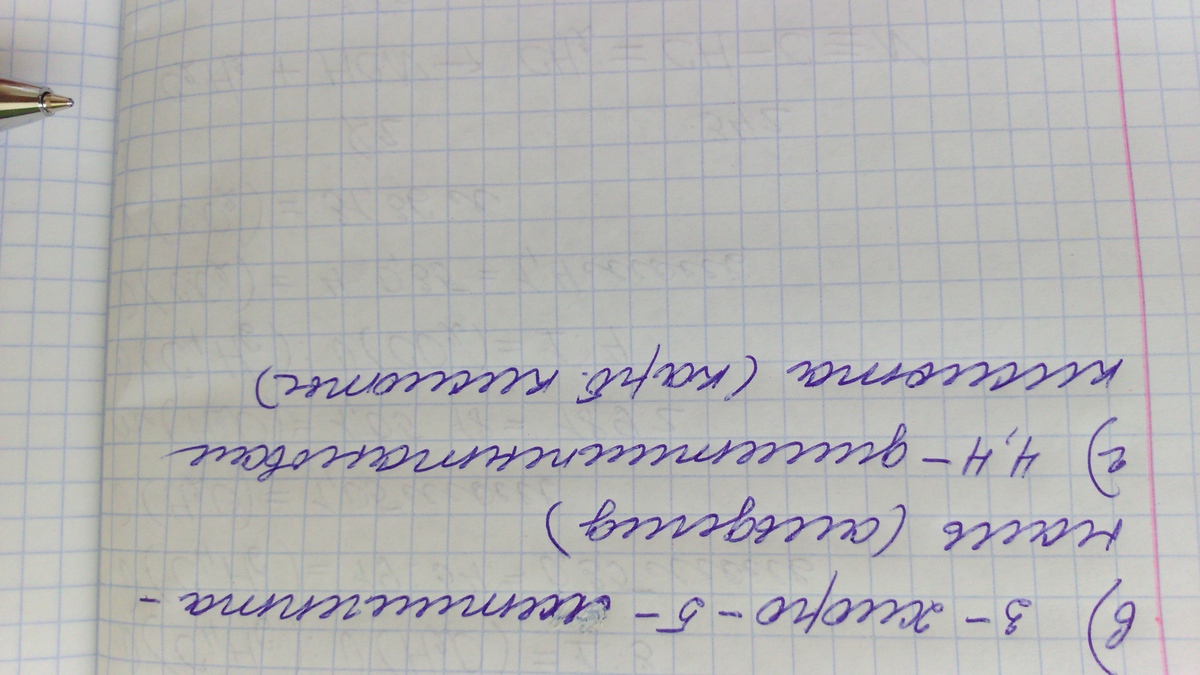 в) 3-хлоро-5-метилгепта-
наль (альдегид)
г) 4,4-диметилпентановая
кислота (карб. кислоты)